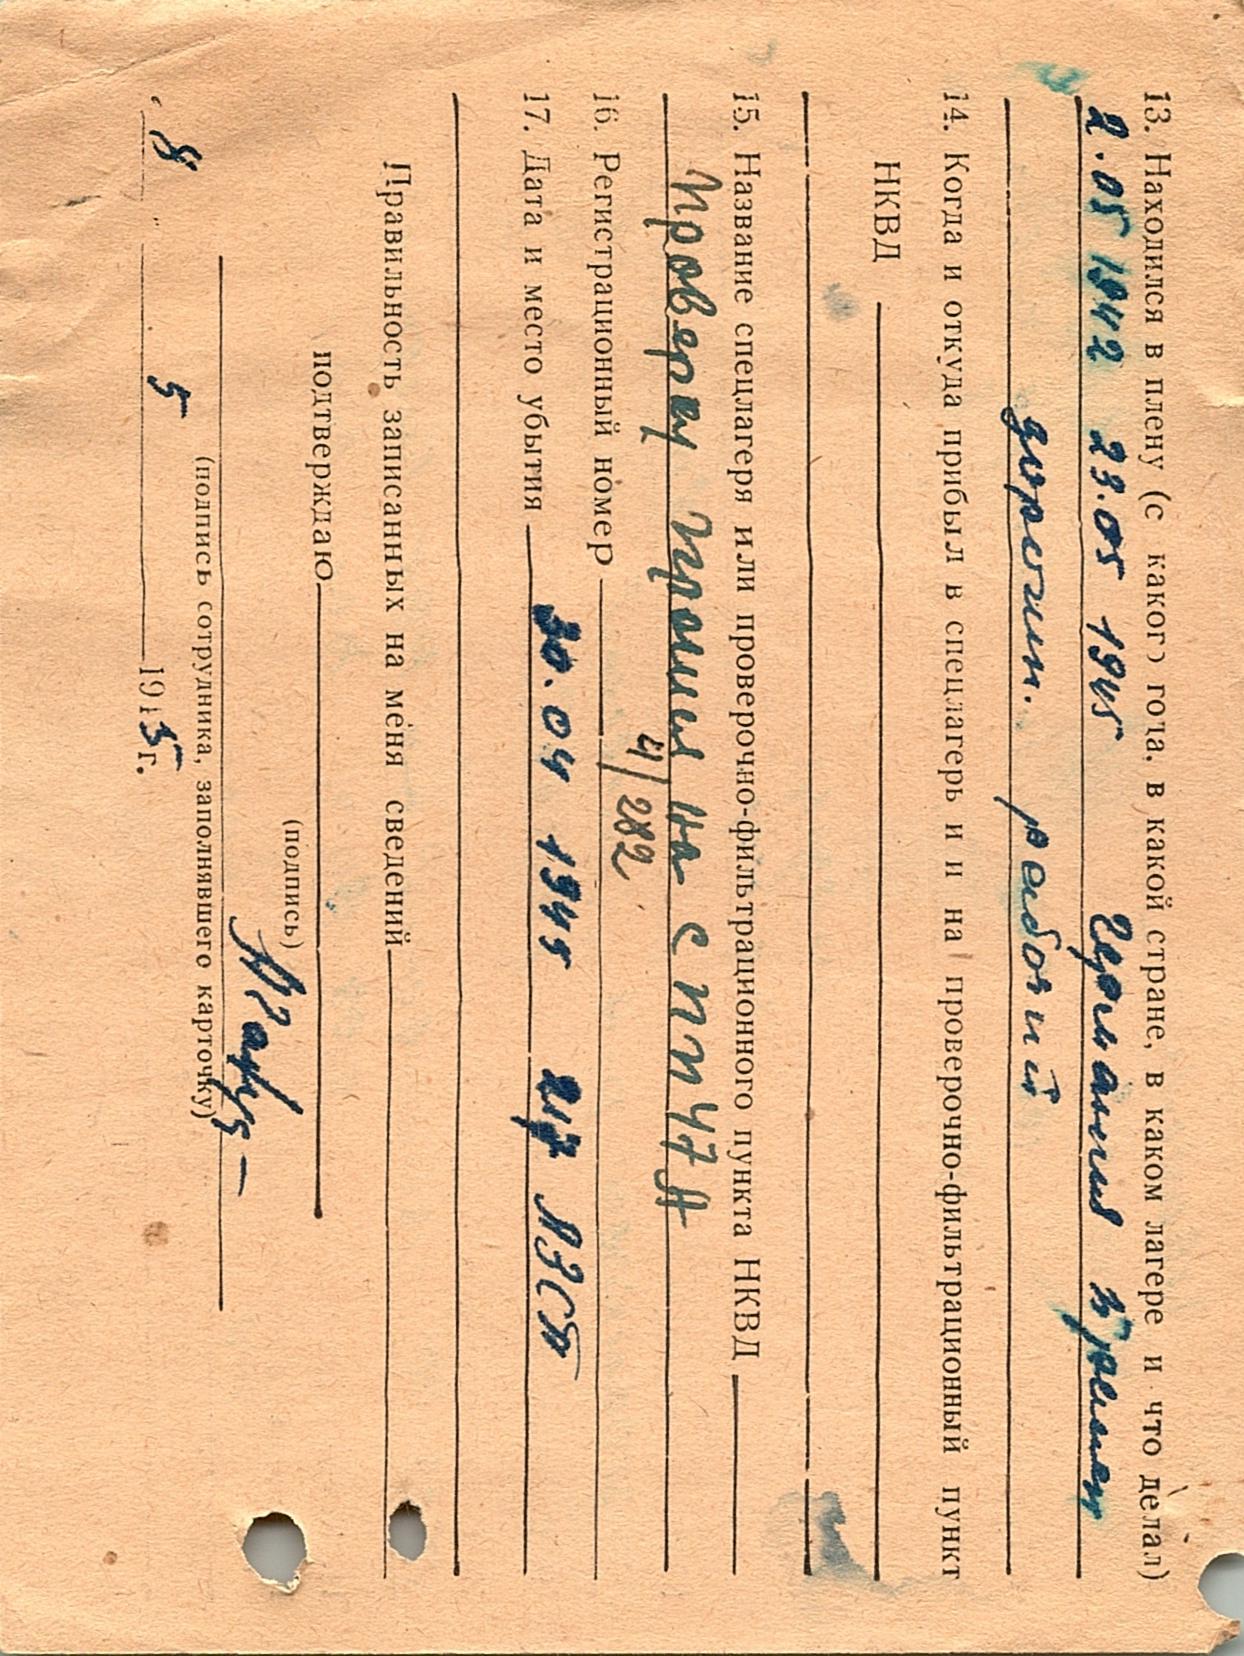 13. Находился в плену (с какого года, в какой стране, в каком лагере и что делал)
2.05 1942 23.05 1945 Германия
рабочий
14. Когда и откуда прибыл в спецлагерь и и на проверочно-фильтрационный пункт
НКВД
15. Название спецлагеря или проверочно-фильтрационного пункта НКВД
Проверку прошел на СПП 47 А
16. Регистрационный номер 4/282
17. Дата и место убытия 30.04 1945 217 АЗСП
Правильность записанных на меня сведений
подтверждаю
(подпись)
(подпись сотрудника, заполнявшего карточку)
" 8 " 5 1945 г.